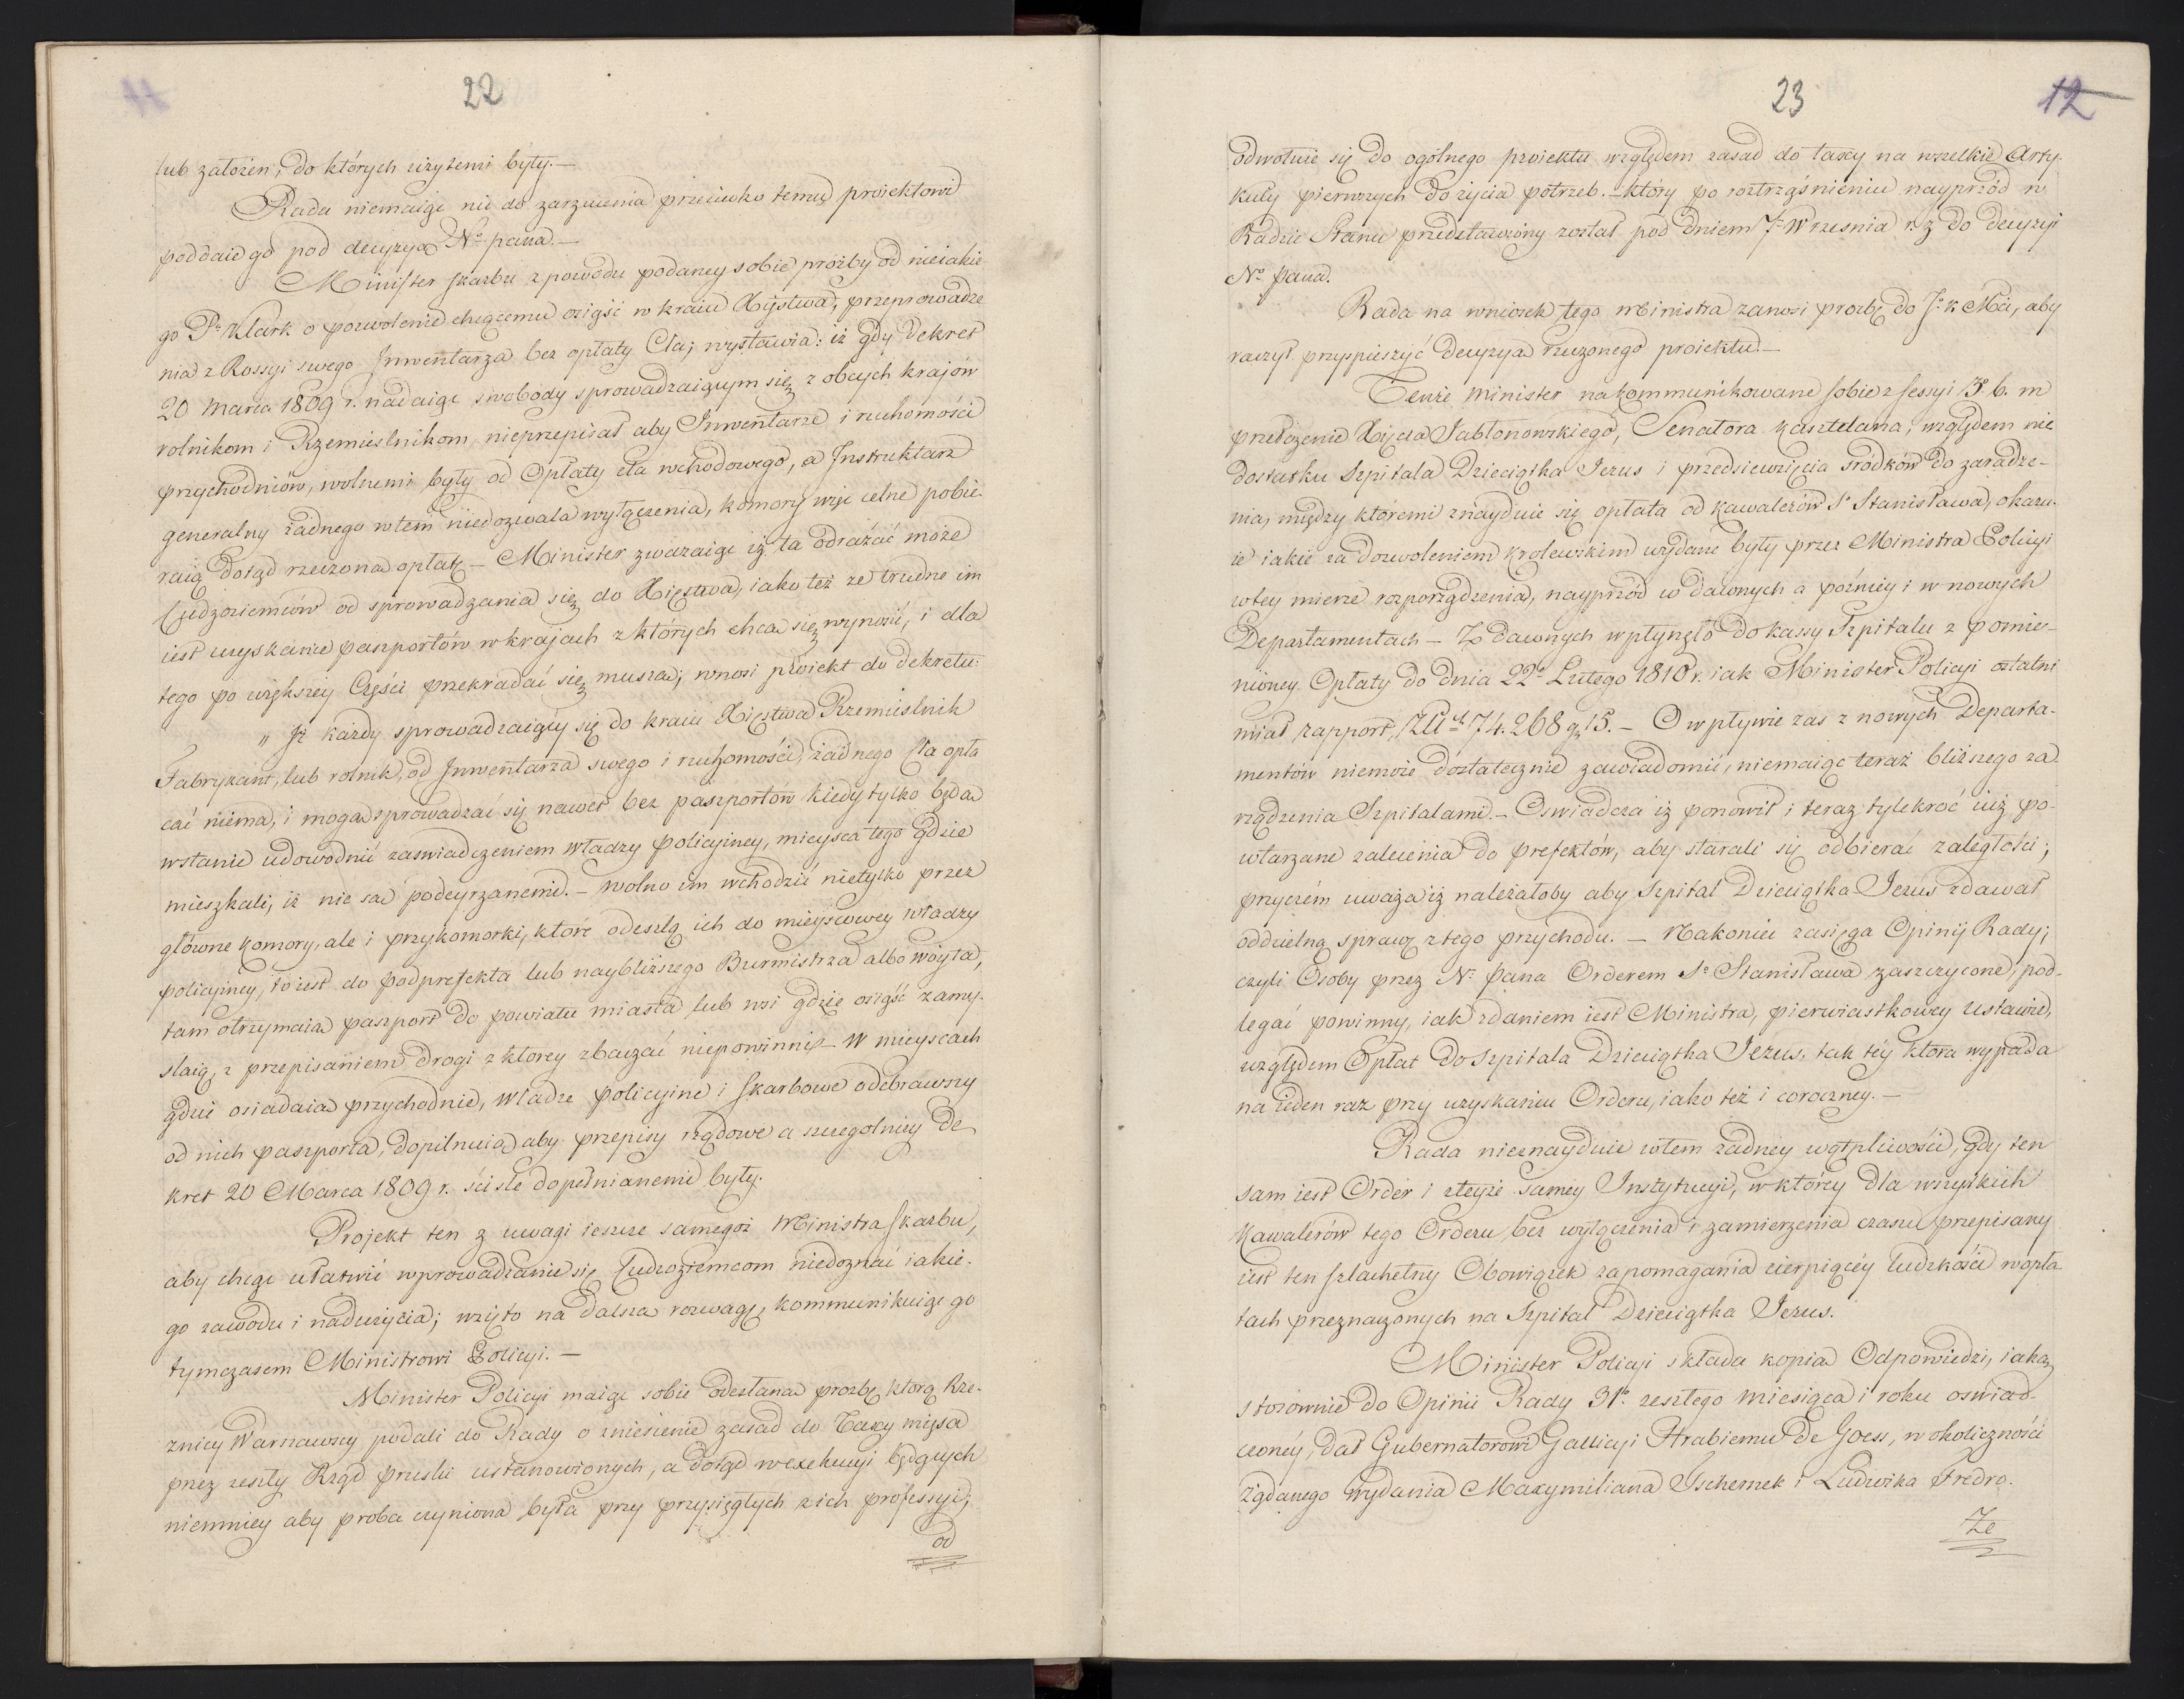 22
lub założeń, do których użytemi były. —
Rada niemaiąc nic do zarzucenia przeciwko temu proiektowi
poddaie go pod decyzyą No pana. —
Minister skarbu z powodu podaney sobie proźby od nieiakie
go Pa Klark o pozwolenie chcącemu osiąść w kraiu Xięstwa, przeprowadze
nia z Rossyi swego Inwentarza bez opłaty Cła; wystawia: iż gdy Dekret
20 Marca 1809 r. nadaiąc swobody sprowadzaiącym się z obcych krajów
rolnikom i Rzemieslnikom, nieprzepisał aby Inwentarze i ruchomości
przychodniów, wolnemi były od Opłaty cła wchodowego, a Instruktarz
generalny żadnego w tem niedozwala wyłączenia, komory więc celne pobie-
raią dotąd rzeczoną opłatę — Minister zważaiąc iż ta odrażać może
Cudzoziemców od sprowadzania się do Xięstwa, iako też że trudne im
iest uzyskanie paszportów w krajach z których chcą się wynosić, i dla
tego po większey Części przekradać się muszą; wnosi proiekt do dekretu:
„ Iż każdy sprowadzaiący się do kraiu Xięstwa Rzemieslnik
Fabrykant, lub rolnik, od Inwentarza swego i ruchomości, żadnego Cła opła
cać niema, i mogą sprowadzać się nawet bez paszportów kiedy tylko będą
wstanie udowodnić zaswiadczeniem władzy policyiney, mieysca tego gdzie
mieszkali, iż nie są podeyrzanemi. — wolno im wchodzić nietylko przez
główne komory, ale i przykomorki, które odeszlą ich do mieyscowey władzy
policyiney, to iest do podprefekta lub naybliższego Burmistrza albo wóyta,
tam otrzymaią paszport do powiatu miasta lub wsi gdzie osiąść zamy-
slaią, z przepisaniem drogi z ktorey zbaczać niepowinni — W mieyscach
gdzie osiadaią przychodnie, władze policyine i skarbowe odebrawszy
od nich paszporta, dopilnuią aby przepisy rządowe a szczegolniey De
kret 20 Marca 1809 r. ściśle dopełnianemi były.
Projekt ten z uwagi ieszcze samegoż Ministra skarbu,
aby chcąc ułatwić wprowadzanie się Cudzoziemcom niedoznać iakie-
go zawodu i nadużycia; wzięto na dalszą rozwagę, kommunikuiąc go
tymczasem Ministrowi Policyi. —
Minister Policyi maiąc sobie odesłaną prozbę którą Rze-
znicy Warszawscy podali do Rady o zniesienie zasad do Taxy mięsa
przez zeszły Rząd pruski ustanowionych, a dotąd w exekucyi będących
niemniey aby proba czyniona była przy przysięgłych z ich professyi;
od
23
12
odwołuie się do ogólnego proiektu względem zasad do taxy na wszelkie Arty-
kuły pierwszych do życia potrzeb. — który po roztrząśnieniu nayprzód w
Radzie Stanu przedstawiony został pod dniem 7o Wrzesnia r. z. do decyzyi
No Pana.
Rada na wniosek tego ministra zanosi prozbę do J. K Mci, aby
raczył przyspieszyć decyzyą rzeczonego proiektu. —
Tenże Minister na kommunikowane sobie z sessyi 3o b. m
przełożenie Xięcia Jabłonowskiego, Senatora kasztelana, względem nie
dostatku Szpitala Dzieciątka Jezus i przedsiewzięcia srodków do zaradze-
nia, między któremi znayduie się opłata od kawalerów S. Stanisława, okazu-
ie iakie za dozwoleniem krolewskim wydane były przez Ministra Policyi
w tey mierze rozporządzenia, nayprzód w dawnych a poźniey i w nowych
Departamentach — Z dawnych wpłynęło do kassy Szpitalu z pomie-
nioney Opłaty do dnia 22o Lutego 1810 r. iak Minister Policyi ostatni
miał rapport, Złł 74.268 gr 15. — O wpływie zas z nowych Departa-
mentów niemoże dostatecznie zawiadomić, niemaiąc teraz bliższego za
rządzenia Szpitalami. — Oswiadcza iż ponowił i teraz tylekroć iuż po-
wtarzane zalecenia do prefektów, aby starali się odbierać zaległości;
przyczém uważa iż należałoby aby Szpital Dzieciątka Jezus zdawał
oddzielną sprawę z tego przychodu. — Nakoniec zasięga Opinij Rady;
czyli Osoby przez No Pana Orderem So Stanisława zaszczycone, pod-
legać powinny, iak zdaniem iest Ministra, pierwiastkowey Ustawie,
względem Opłat do szpitala Dzieciątka Jezus, tak téy która wypada
na ieden raz przy uzyskaniu Orderu, iako też i coroczney. —
Rada nieznayduie w tem żadney wątpliwości, gdy ten
sam iest Order i z teyże samey Instytucyi, w któréy dla wszystkich
Kawalerów tego Orderu, bez wyłączenia i zamierzenia czasu przepisany
iest ten szlachetny Obowiązek zapomagania cierpiącéy ludzkości w opła
tach przeznaczonych na Szpital Dzieciątka Jezus.
Minister Policyi składa kopią Odpowiedzi, iaką
stosownie do Opinii Rady 31o zeszłego miesiąca i roku oswiad-
czoney, dał Gubernatorowi Gallicyi Hrabiemu de Goess, w okoliczności
żądanego wydania Maxymiliana Tschernek i Ludwika Fredro.
Ze